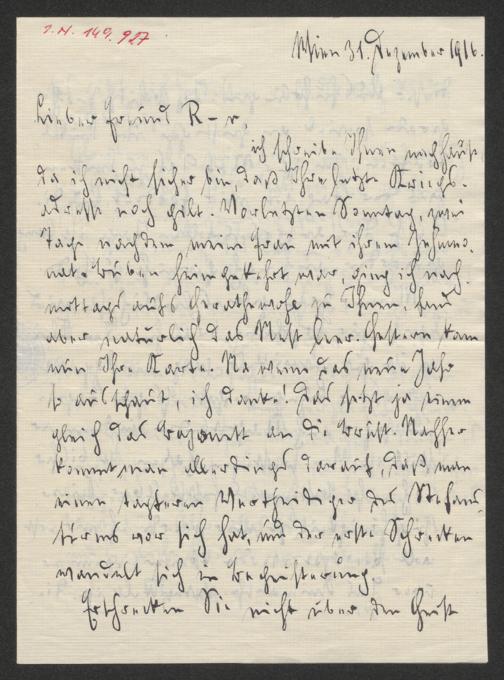 J.N. 149.927
Wien 31. Dezember 1916.
Lieber Freund R-r,
ich schreibe Ihnen nachhause
da ich nicht sicher bin, daß Ihre letzte Kriegs-
adresse noch gilt. Vorletzten Sonntag, zwei
Tage nachdem meine Frau mit ihrem
Buben heimgekehrt war, ging ich nach-
mittags aufs Gerathewohl zu Ihnen, fand
aber natürlich das Nest leer. Gestern kam
nun Ihre Karte. Na wenn das neue Jahr
so ausschaut, ich danke! Das setzt ja einem
gleich das Bajonett an die Brust. Nachher
kommt man allerdings darauf, daß man
einen tapferen Vertheidiger des Stefans-
turms vor sich hat, und der erste Schrecken
wandelt sich in Begeisterung.
Erschrecken Sie nicht über den Geist